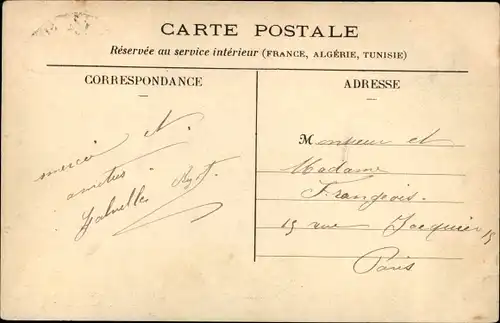 CARTE POSTALE
Réservée au service intérieur (FRANCE, ALGÉRIE, TUNISIE)
CORRESPONDANCE
merci et
amitiés
ADRESSE
Monsieur et
Madame
Françeois.
15 rue Jacquier 15
Paris